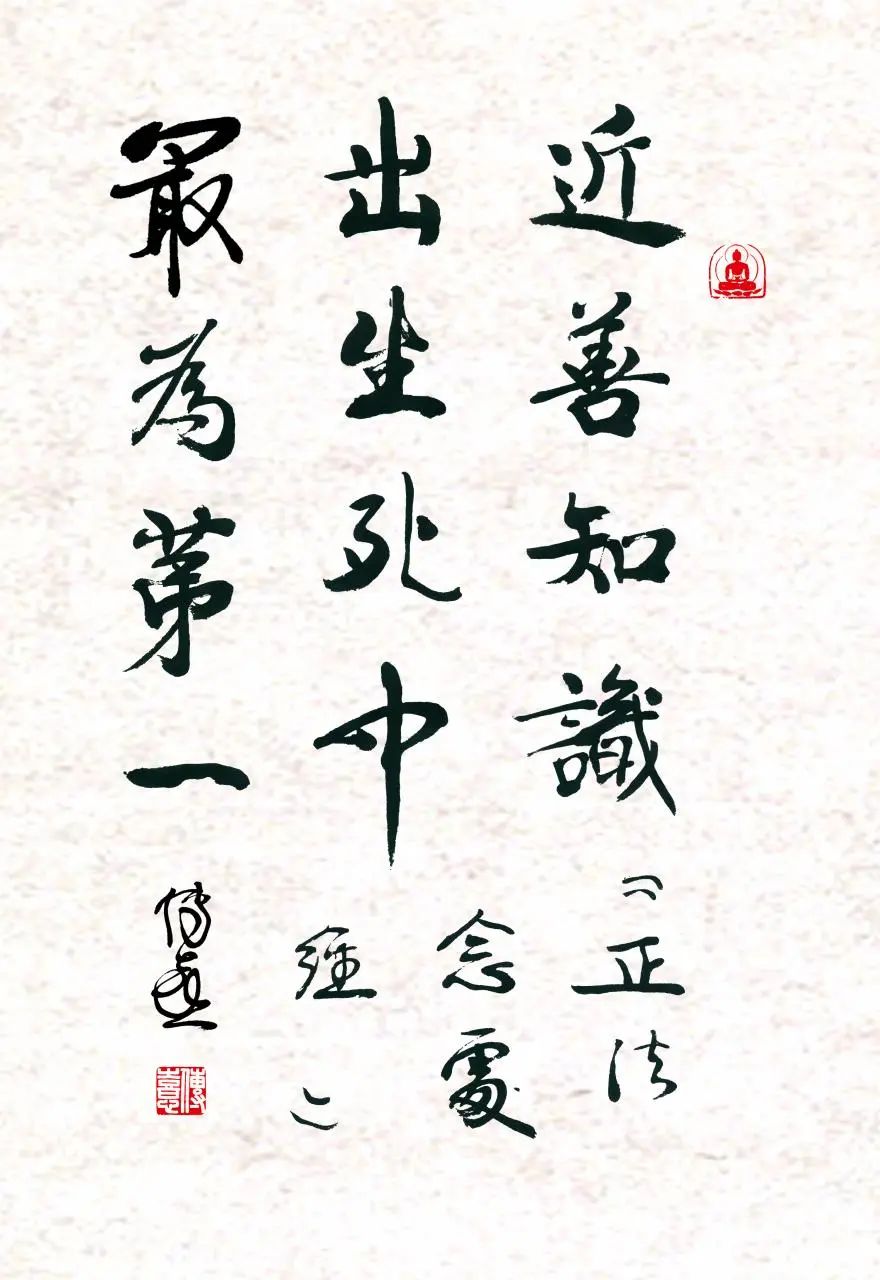 近善知識
出生死中
最為第一
《正法
念處
經》
傳喜
傳喜